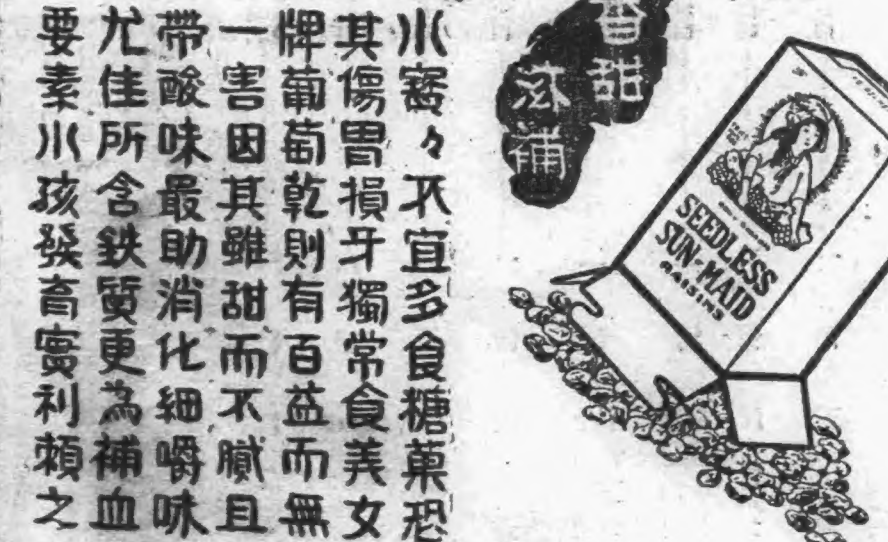 香甜
滋補
SEEDLESS
SUN-MAID
RAISINS
小寳々不宜多食糖菓恐
其傷胃損牙獨常食美女
牌葡萄乾則有百益而無
一害因其雖甜而不膩且
帶酸味最助消化細嚼味
尤佳所含鉄質更為補血
要素小孩發育實利賴之